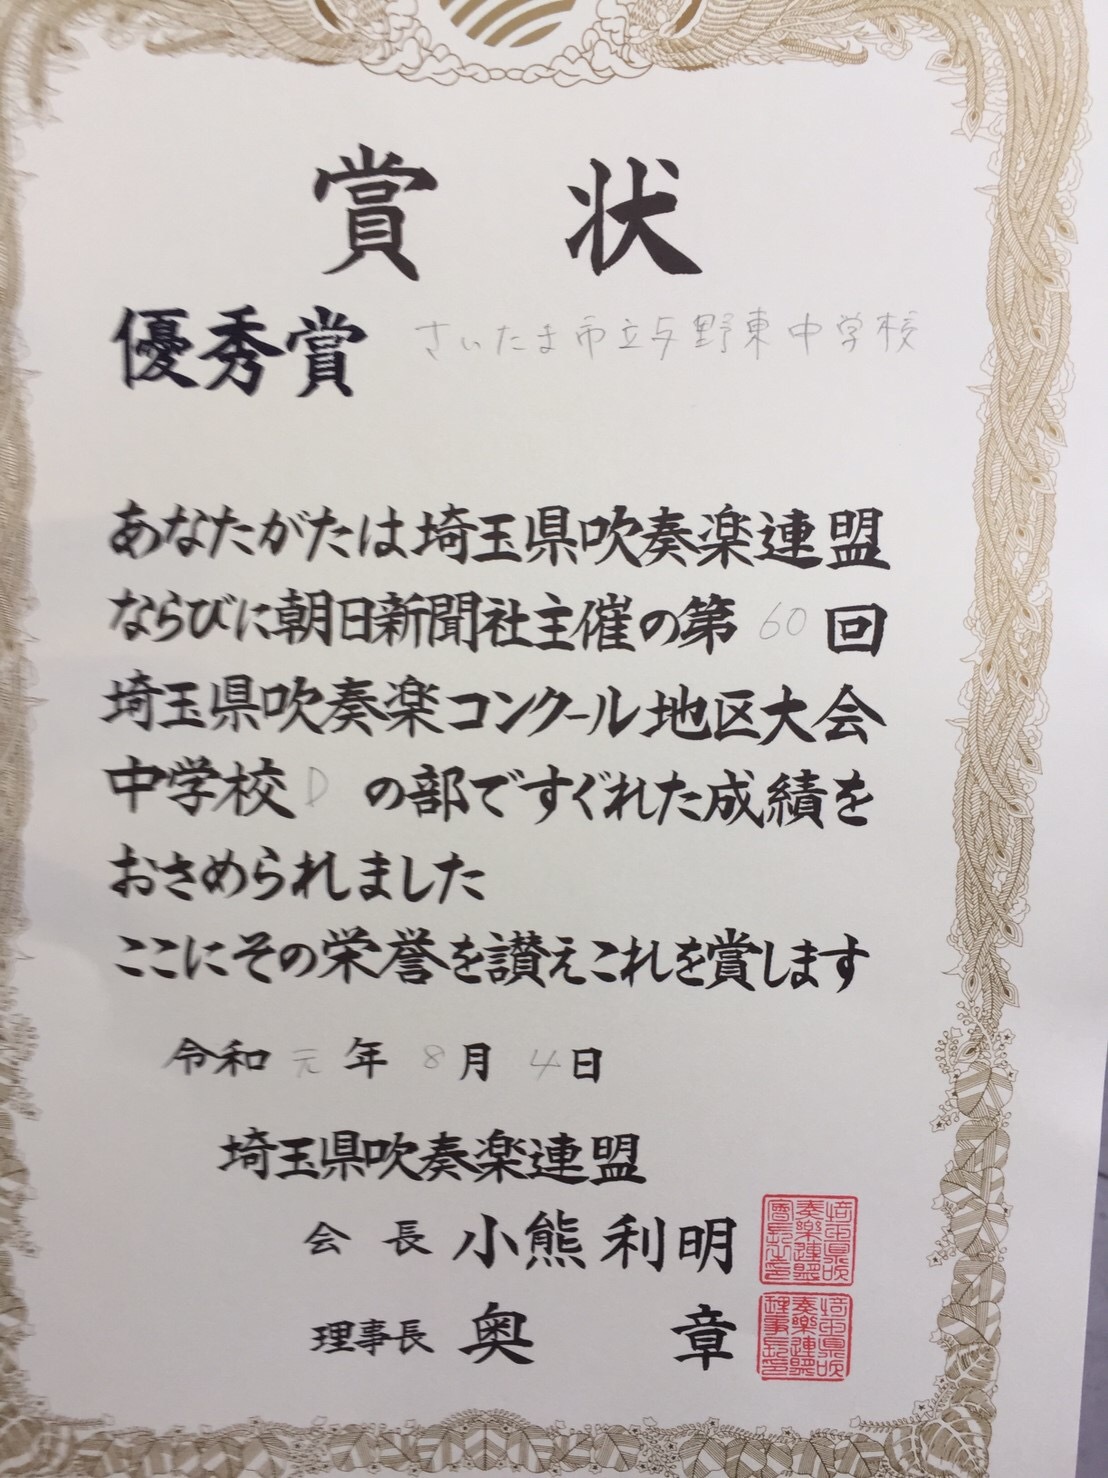 賞状
優秀賞 さいたま市立与野東中学校
あなたがたは埼玉県吹奏楽連盟
ならびに朝日新聞社主催の第60回
埼玉県吹奏楽コンクール地区大会
中学校Dの部ですぐれた成績を
おさめられました
ここにその栄誉を讃えこれを賞します
令和元年8月4日
埼玉県吹奏楽連盟
会長 小熊利明
理事長 奥章